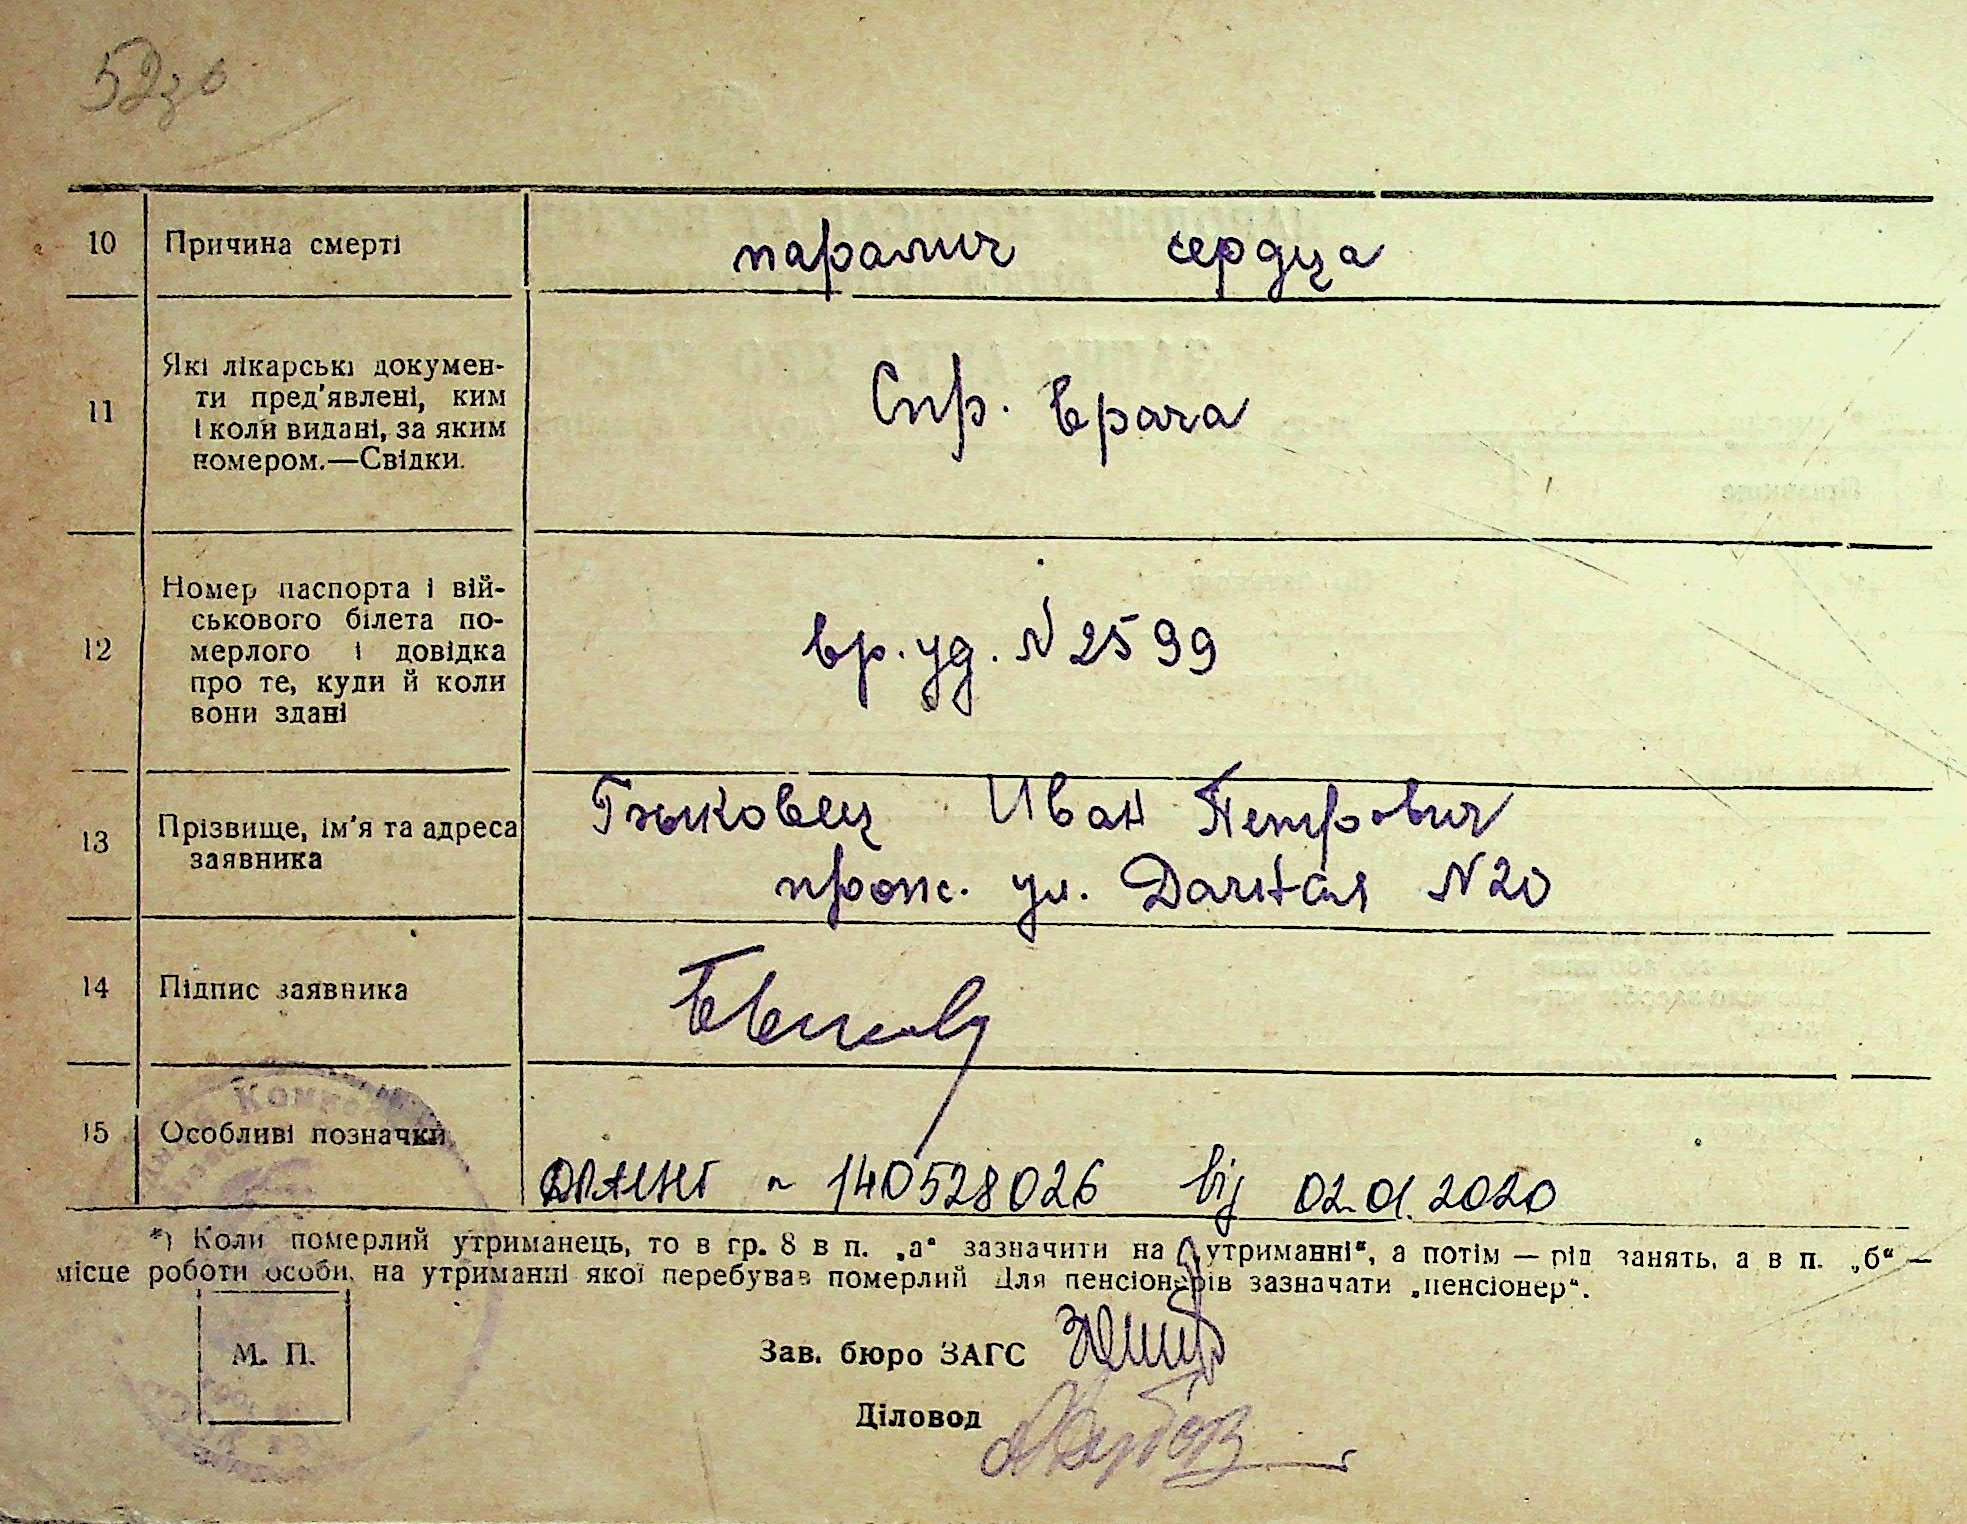 10 Причина смерті
паралич сердца
11 Які лікарські докумен-
ти пред'явлені, ким
і коли видані, за яким
номером.—Свідки.
Спр. врача
12 Номер паспорта і вій-
ськового білета по-
мерлого і довідка
про те, куди й коли
вони здані
вр. уд. N 2599
13 Прізвище, ім'я та адреса
заявника
Иван Петрович
прож. ул. Дачная N 20
14 Підпис заявника
15 Особливі позначки
140528026 від 02.01.2020
*) Коли померлий утриманець, то в гр. 8 в п. „а“ зазначити на „утриманні“, а потім — рід занять, а в п. „б“ —
місце роботи особи, на утриманні якої перебував померлий Для пенсіонерів зазначати „пенсіонер“.
М. П.
Зав. бюро ЗАГС
Діловод